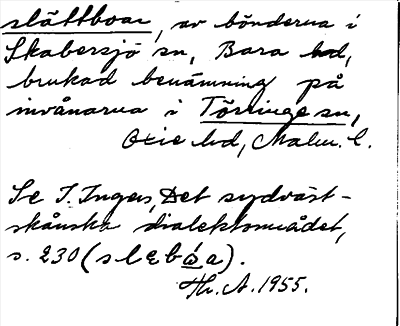 slättboar, av bönderna i
Skabersjö sn, Bara hd,
brukad benämning på
invånarna i Törringe sn,
Oxie hd, Malm. l.
Se I. Ingers, Det sydväst-
skånska dialektområdet,
s. 230 (slɛbǻa).
Th. A. 1955.